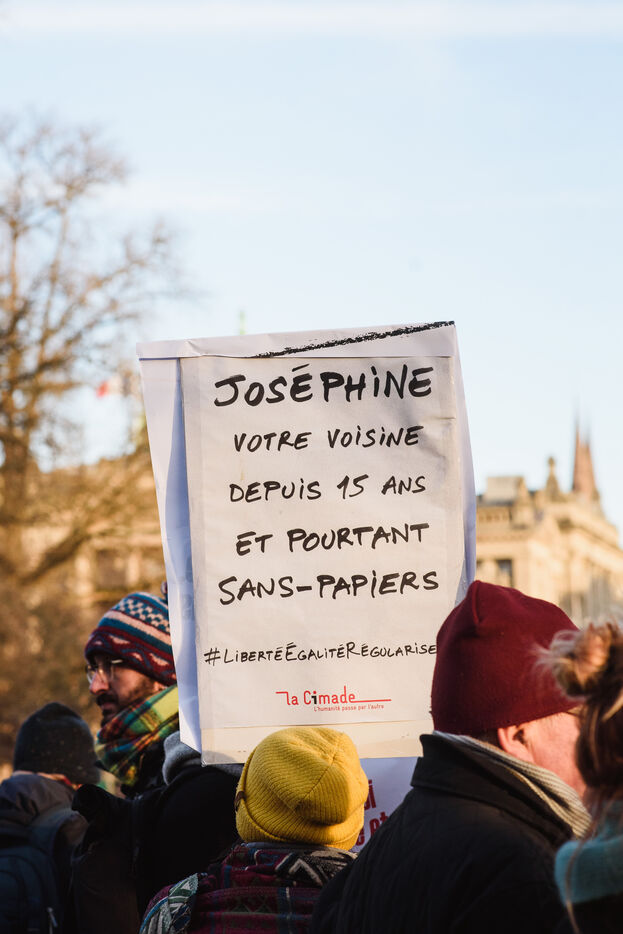 JOSÉPHINE
VOTRE VOISINE
DEPUIS 15 ANS
ET POURTANT
SANS-PAPIERS
#LIBERTÉÉGALITÉRÉGULARISE
la Cimade
L'humanité passe par l'autre